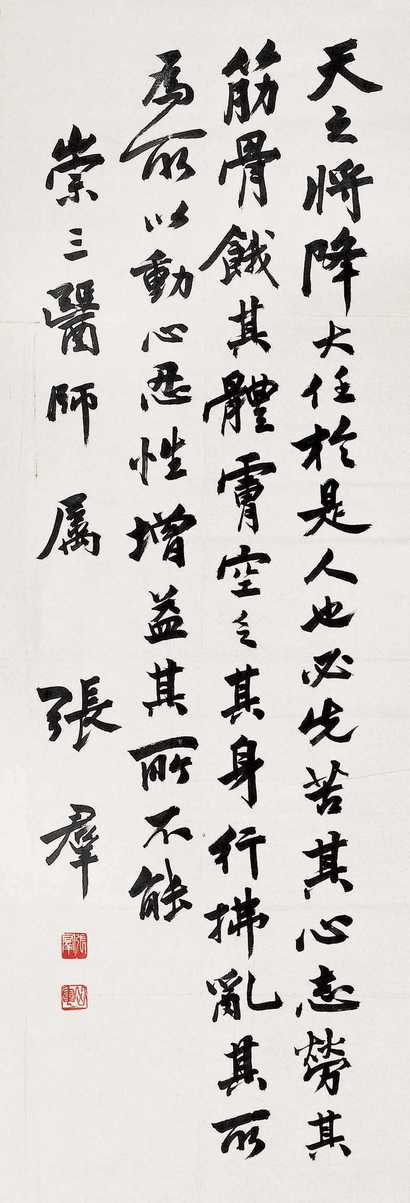 天之將降大任於是人也必先苦其心志勞其
筋骨餓其體膚空乏其身行拂亂其所
為所以動心忍性增益其所不能
崇三醫師屬 張羣
張羣
岳軍